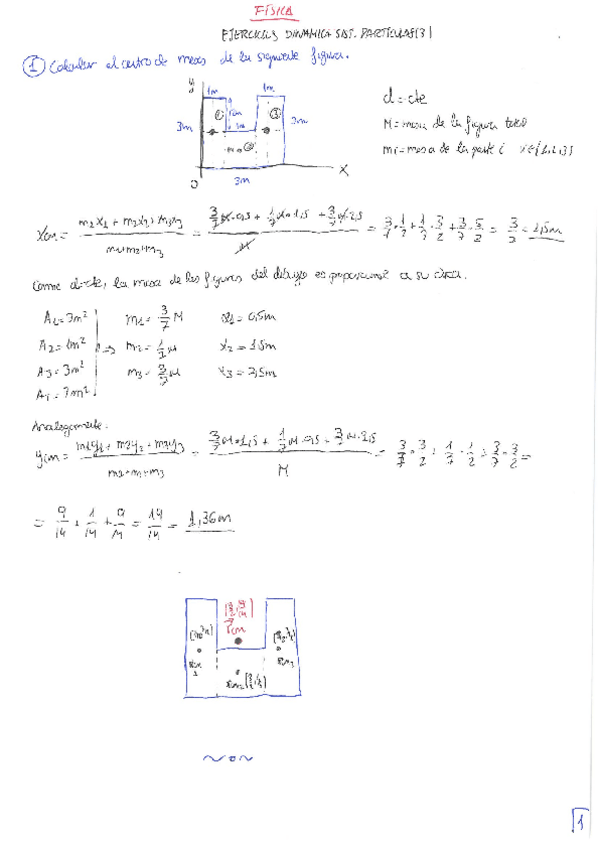 FÍSICA
EJERCICIOS DINÁMICA SIST. PARTÍCULAS (3)
① Calcular el centro de masas de la siguiente figura.
y
1m 1m
d = cte
① 1m ③
M = masa de la figura total
3m 3m
② mi = masa de la parte i i∈{1,2,3}
x
O
3m
xcm = (m1x1 + m2x2 + m3x3)/(m1+m2+m3) = (3/7 M·0,5 + 1/7 M·1,5 + 3/7 M·2,5)/M = 3/7·1/2 + 1/7·3/2 + 3/7·5/2 = 3/2 = 1,5m
Como d=cte, la masa de las figuras del dibujo es proporcional a su área.
A1 = 3m² m1 = 3/7 M x1 = 0,5m
A2 = 1m² ⇒ m2 = 1/7 M x2 = 1,5m
A3 = 3m² m3 = 3/7 M x3 = 2,5m
AT = 7m²
Análogamente:
ycm = (m1y1 + m2y2 + m3y3)/(m1+m2+m3) = (3/7 M·1,5 + 1/7 M·0,5 + 3/7 M·1,5)/M = 3/7·3/2 + 1/7·1/2 + 3/7·3/2 =
= 9/14 + 1/14 + 9/14 = 19/14 = 1,36m
rcm
~o~
1